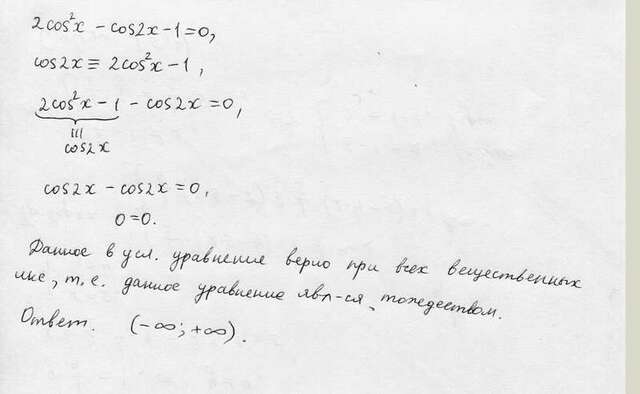 2cos²x - cos2x - 1 = 0,
cos2x ≡ 2cos²x - 1,
2cos²x - 1 - cos2x = 0,
III
cos2x
cos2x - cos2x = 0,
0=0.
Данное в усл. уравнение верно при всех вещественных
икс, т.е. данное уравнение явл-ся тождеством.
Ответ. (-∞; +∞).